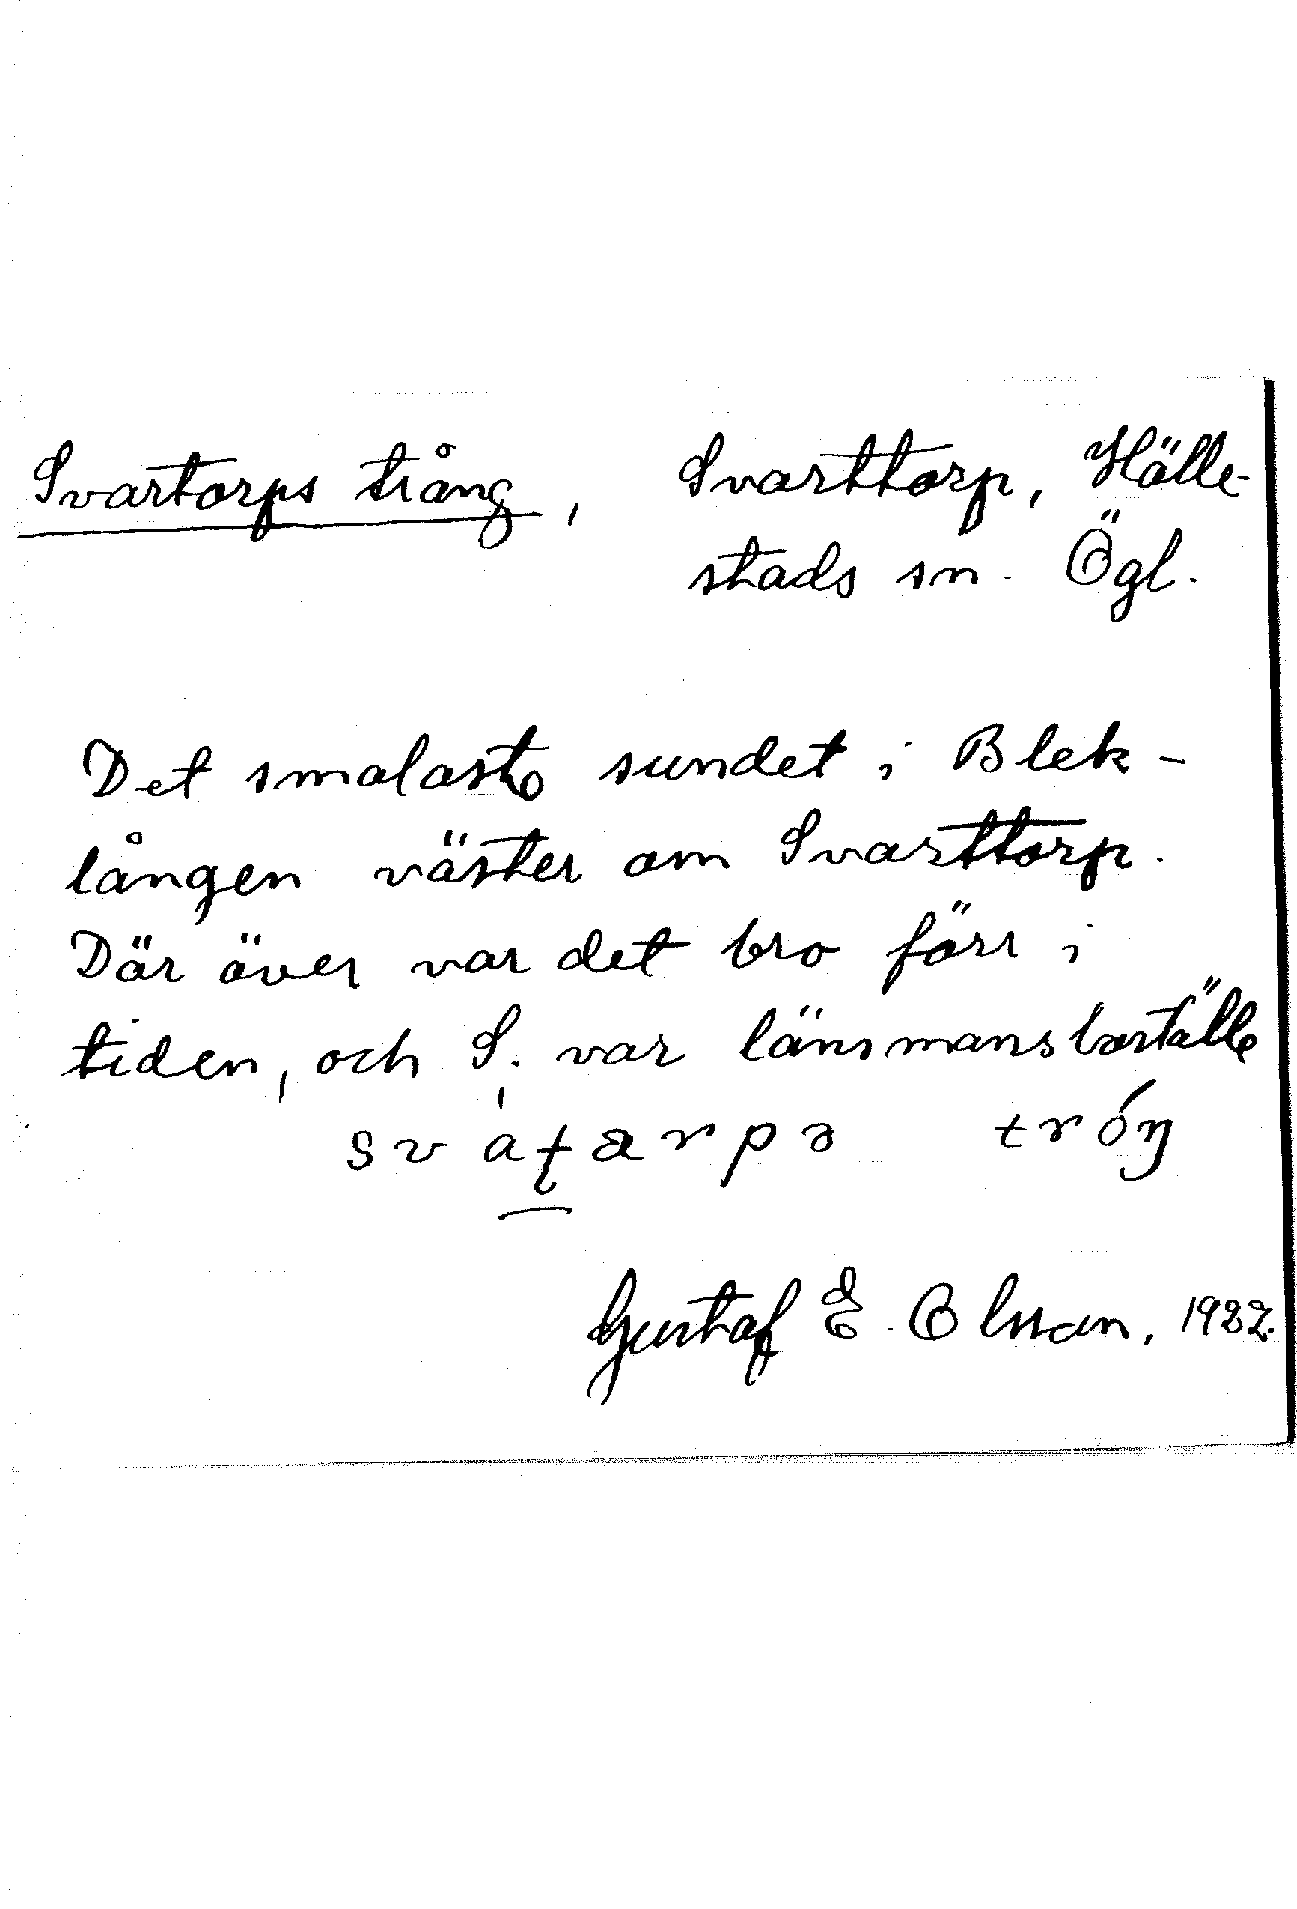 Svartorps trång, Svarttorp, Hälle-
stads sn. Ögl.
Det smalaste sundet i Blek-
lången väster om Svarttorp.
Där över var det bro förr i
tiden, och S. var länsmansboställe
Gustaf E. Olsson, 1922.